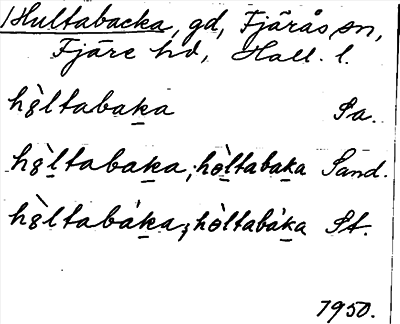 Hultabacka, gd, Fjärås sn,
Fjäre hd, Hall. l.
hò̤ltabaka Sa.
hò̤ltabaka; hòltabaka Sand.
hò̤ltabàka; hòltabàka St.
1950.